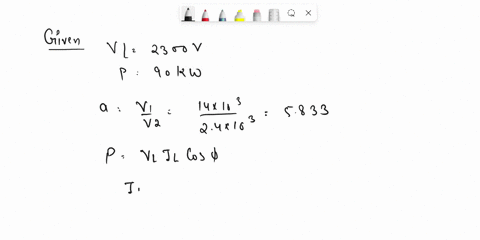 Given
VL = 2300 V
P = 90 kW
a = V1/V2 = 14×10^3/2.4×10^3 = 5.833
P = VL IL Cos ϕ
I